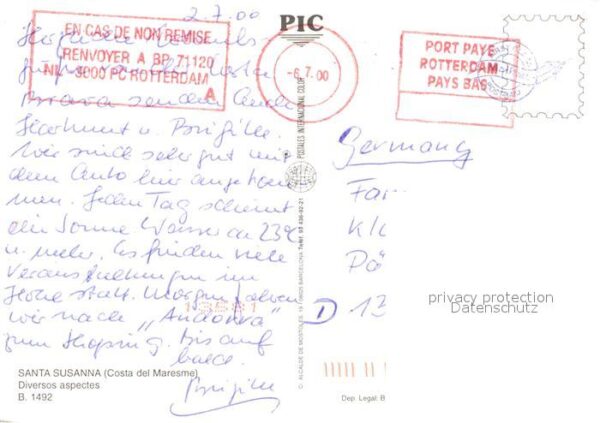 2.7.00
EN CAS DE NON REMISE
RENVOYER A BP 71120
NL - 3000 PC ROTTERDAM
A
PIC
-6.7.00
PORT PAYÉ
ROTTERDAM
PAYS BAS
senden Guido
Hartmut u. Brigitte.
Wir sind sehr gut mit
dem Auto hier angekom
men. Jeden Tag scheint
die Sonne Wasser ca 23°C
u. mehr. Es finden viele
Veranstaltungen im
Hotel statt. Morgen fahren
wir nach "Andorra"
zum Shoping. Bis auf
bald.
Brigitte
Germany
Far
Kl
Pö
D 13
13581
privacy protection
Datenschutz
SANTA SUSANNA (Costa del Maresme)
Diversos aspectes
B. 1492
POSTALES INTERNACIONAL COLOR
C. ALCALDE DE MOSTOLES, 19 08025 BARCELONA Telef. 93 436-92-21
Dep. Legal: B